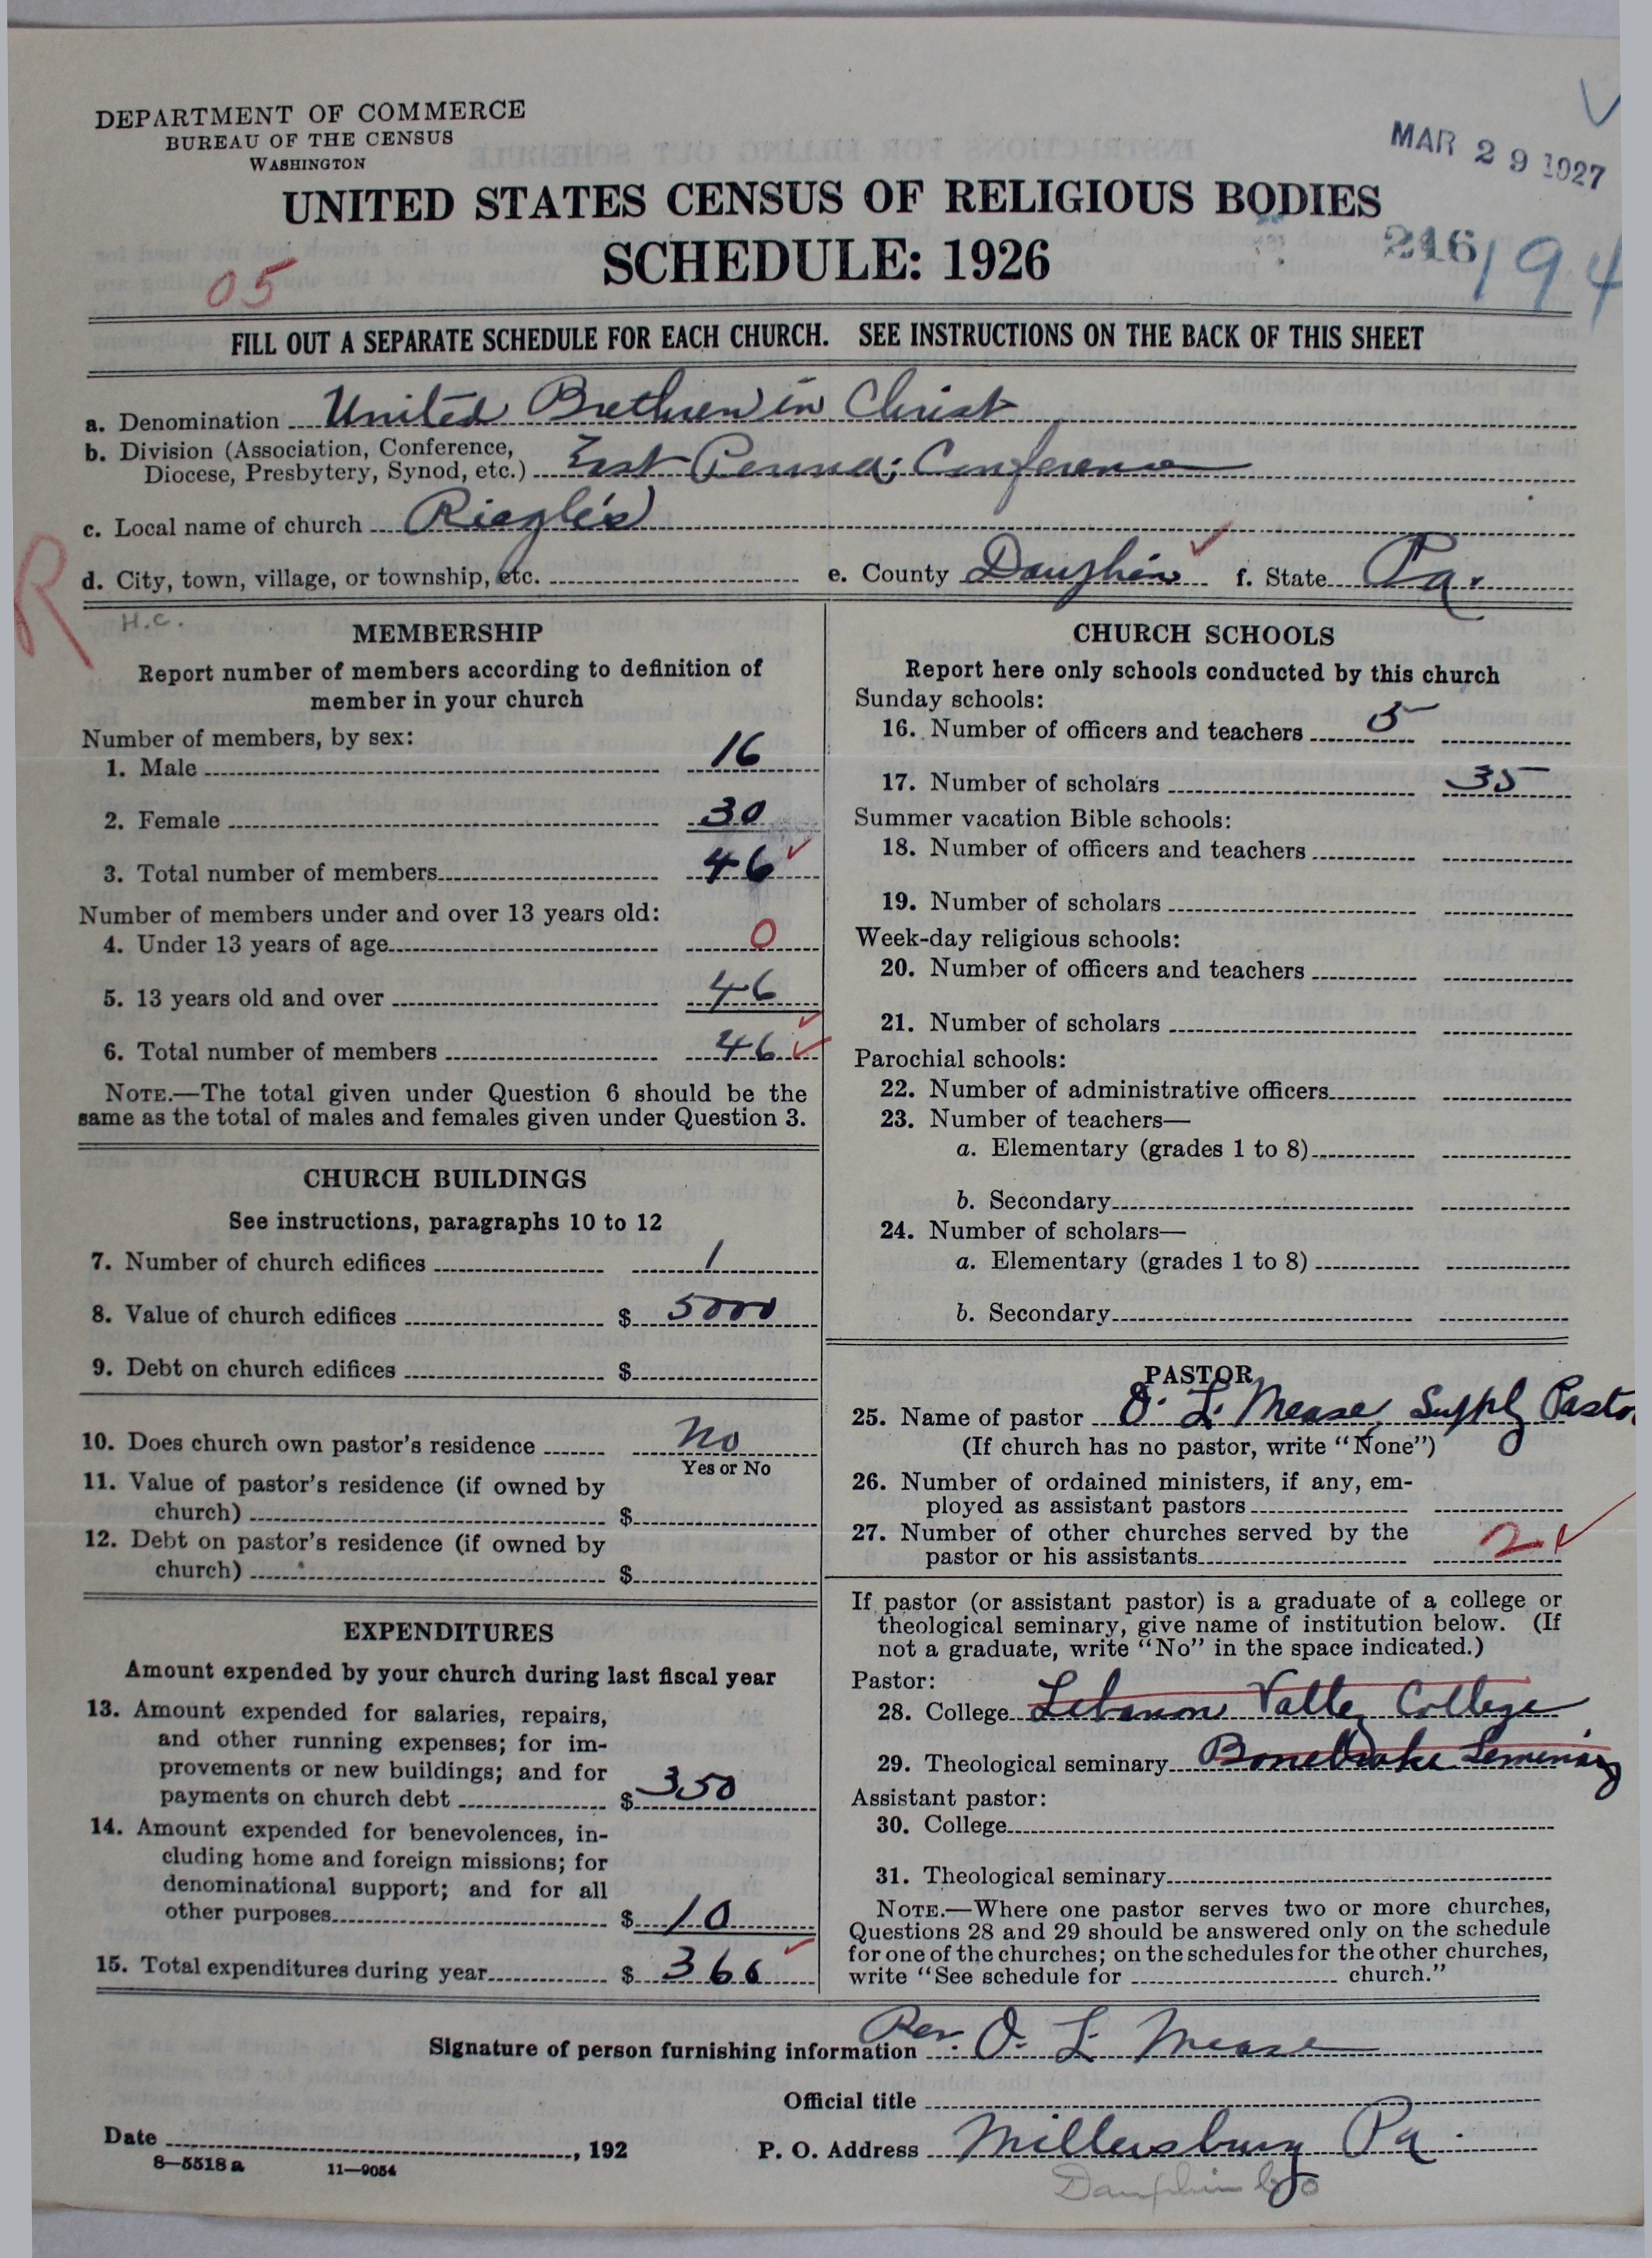 DEPARTMENT OF COMMERCE
BUREAU OF THE CENSUS
WASHINGTON
MAR 29 1927
UNITED STATES CENSUS OF RELIGIOUS BODIES
SCHEDULE: 1926
216
194
05
FILL OUT A SEPARATE SCHEDULE FOR EACH CHURCH. SEE INSTRUCTIONS ON THE BACK OF THIS SHEET
a. Denomination United Brethren in Christ
b. Division (Association, Conference,
Diocese, Presbytery, Synod, etc.) East Penna. Conference
c. Local name of church Riegle's
d. City, town, village, or township, etc. e. County Dauphin f. State Pa.
R
H.C.
MEMBERSHIP
Report number of members according to definition of
member in your church
Number of members, by sex:
1. Male 16
2. Female 30
3. Total number of members 46
Number of members under and over 13 years old:
4. Under 13 years of age 0
5. 13 years old and over 46
6. Total number of members 46
NOTE.—The total given under Question 6 should be the
same as the total of males and females given under Question 3.
CHURCH BUILDINGS
See instructions, paragraphs 10 to 12
7. Number of church edifices 1
8. Value of church edifices $ 5000
9. Debt on church edifices $
10. Does church own pastor's residence No
Yes or No
11. Value of pastor's residence (if owned by
church) $
12. Debt on pastor's residence (if owned by
church) $
EXPENDITURES
Amount expended by your church during last fiscal year
13. Amount expended for salaries, repairs,
and other running expenses; for im-
provements or new buildings; and for
payments on church debt $ 350
14. Amount expended for benevolences, in-
cluding home and foreign missions; for
denominational support; and for all
other purposes $ 10
15. Total expenditures during year $ 360
CHURCH SCHOOLS
Report here only schools conducted by this church
Sunday schools:
16. Number of officers and teachers 5
17. Number of scholars 35
Summer vacation Bible schools:
18. Number of officers and teachers
19. Number of scholars
Week-day religious schools:
20. Number of officers and teachers
21. Number of scholars
Parochial schools:
22. Number of administrative officers
23. Number of teachers—
a. Elementary (grades 1 to 8)
b. Secondary
24. Number of scholars—
a. Elementary (grades 1 to 8)
b. Secondary
PASTOR
25. Name of pastor O. L. Mease, Supply Pastor
(If church has no pastor, write "None")
26. Number of ordained ministers, if any, em-
ployed as assistant pastors
27. Number of other churches served by the
pastor or his assistants 2
If pastor (or assistant pastor) is a graduate of a college or
theological seminary, give name of institution below. (If
not a graduate, write "No" in the space indicated.)
Pastor:
28. College Lebanon Valley College
29. Theological seminary Bonebrake Seminary
Assistant pastor:
30. College
31. Theological seminary
NOTE.—Where one pastor serves two or more churches,
Questions 28 and 29 should be answered only on the schedule
for one of the churches; on the schedules for the other churches,
write "See schedule for church."
Signature of person furnishing information Rev. O. L. Mease
Official title
Date , 192 P. O. Address Millersburg Pa.
8—5518a 11—9054
Dauphin Co